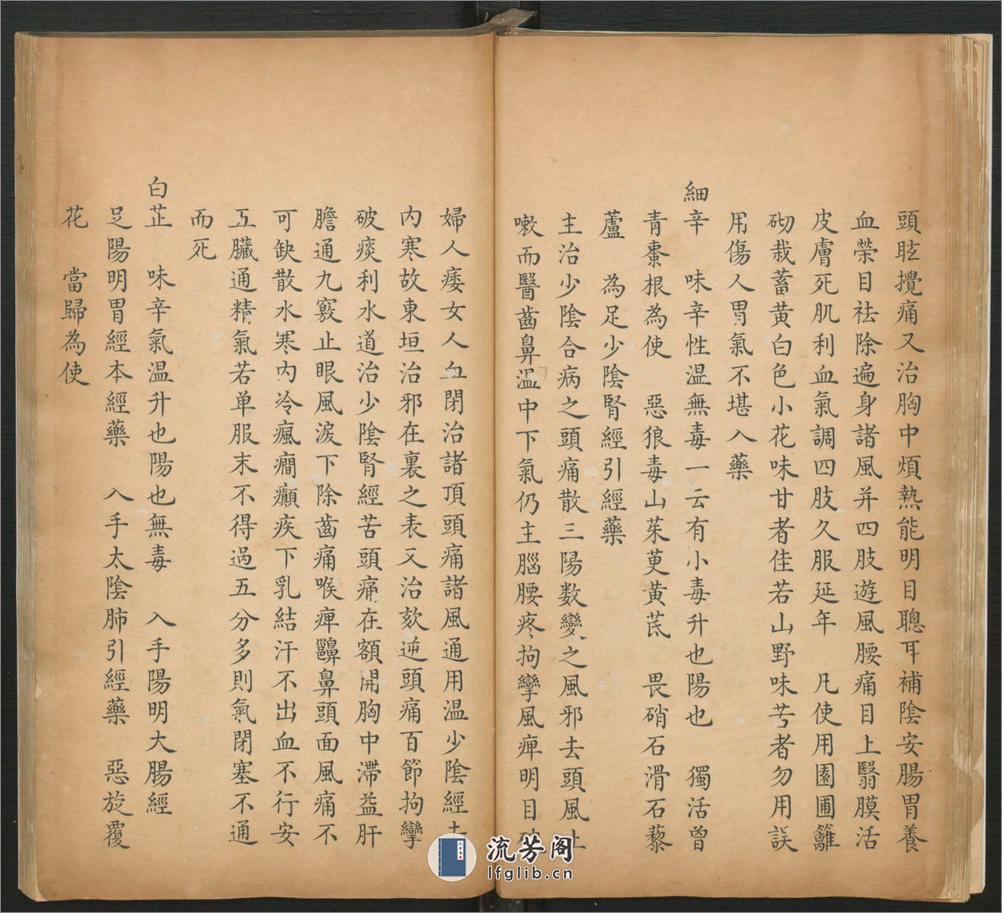 頭眩攪痛又治胸中煩熱能明目聰耳補陰安腸胃養
血榮目祛除遍身諸風并四肢遊風腰痛目上翳膜活
皮膚死肌利血氣調四肢久服延年　凡使用園圃籬
砌栽蓄黃白色小花味甘者佳若山野味苦者勿用誤
用傷人胃氣不堪入藥
細辛　味辛性溫無毒一云有小毒升也陽也　獨活曾
青棗根為使　惡狼毒山茱萸黃茋　畏硝石滑石藜
蘆　為足少陰腎經引經藥
主治少陰合病之頭痛散三陽数變之風邪去頭風止
嗽而醫齒鼻溫中下氣仍主腦腰疼拘攣風痺明目破
婦人痿女人血閉治諸頂頭痛諸風通用溫少陰經去
內寒故東垣治邪在裏之表又治欬逆頭痛百節拘攣
破痰利水道治少陰腎經苦頭痛在額開胸中滯益肝
膽通九竅止眼風淚下除齒痛喉痺齆鼻頭面風痛不
可缺散水寒內冷瘋癎癲疾下乳結汗不出血不行安
五臟通精氣若单服末不得過五分多則氣閉塞不通
而死
白芷　味辛氣溫升也陽也無毒　入手陽明大腸經
足陽明胃經本經藥　入手太陰肺引經藥　惡旋覆
花　當歸為使
流芳阁
lfglib.cn